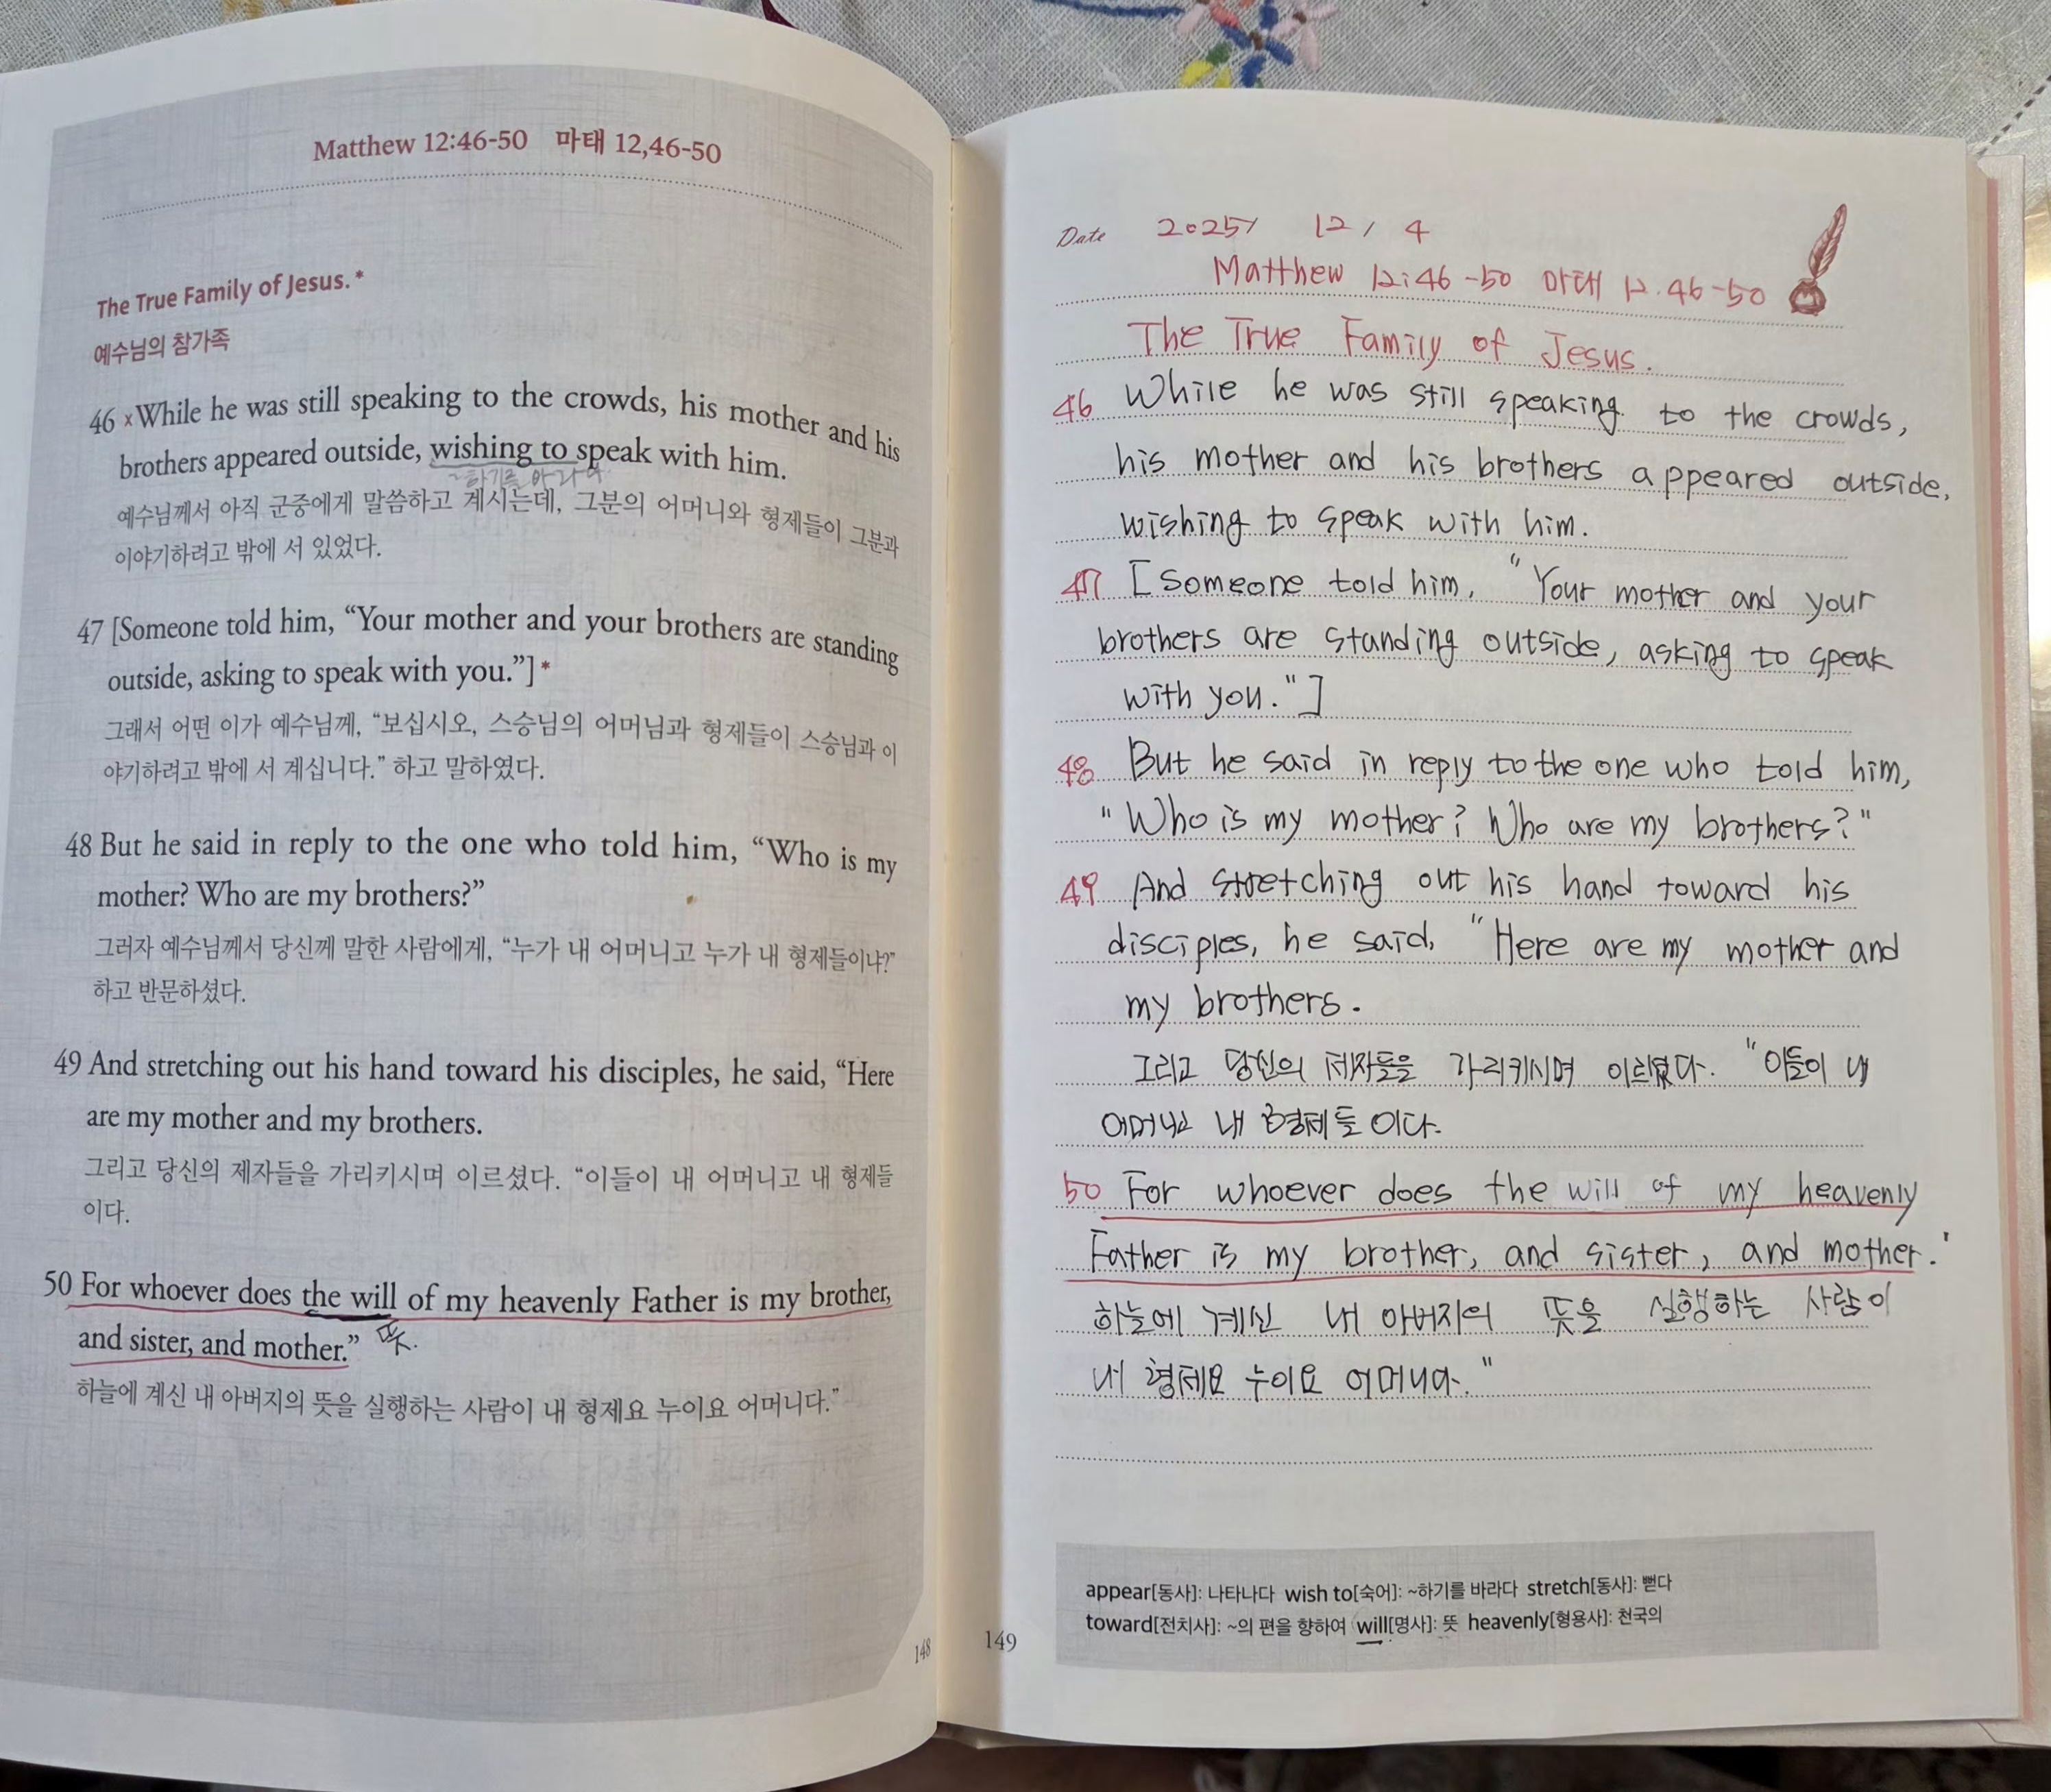 Matthew 12:46-50 마태 12,46-50
The True Family of Jesus.*
예수님의 참가족
46 ×While he was still speaking to the crowds, his mother and his
brothers appeared outside, wishing to speak with him.
~하기를 바라다
예수님께서 아직 군중에게 말씀하고 계시는데, 그분의 어머니와 형제들이 그분과
이야기하려고 밖에 서 있었다.
47 [Someone told him, “Your mother and your brothers are standing
outside, asking to speak with you.”]*
그래서 어떤 이가 예수님께, “보십시오, 스승님의 어머님과 형제들이 스승님과 이
야기하려고 밖에 서 계십니다.” 하고 말하였다.
48 But he said in reply to the one who told him, “Who is my
mother? Who are my brothers?”
그러자 예수님께서 당신께 말한 사람에게, “누가 내 어머니고 누가 내 형제들이냐?”
하고 반문하셨다.
49 And stretching out his hand toward his disciples, he said, “Here
are my mother and my brothers.
그리고 당신의 제자들을 가리키시며 이르셨다. “이들이 내 어머니고 내 형제들
이다.
50 For whoever does the will of my heavenly Father is my brother,
and sister, and mother.” 뜻.
하늘에 계신 내 아버지의 뜻을 실행하는 사람이 내 형제요 누이요 어머니다.”
148
Date 2025/ 12 / 4
Matthew 12:46-50 마태 12.46-50
The True Family of Jesus.
46 While he was still speaking to the crowds,
his mother and his brothers appeared outside,
wishing to speak with him.
47 [Someone told him, "Your mother and your
brothers are standing outside, asking to speak
with you."]
48 But he said in reply to the one who told him,
"Who is my mother? Who are my brothers?"
49 And stretching out his hand toward his
disciples, he said, "Here are my mother and
my brothers.
그리고 당신의 제자들을 가리키시며 이르셨다. "이들이 내
어머니고 내 형제들이다.
50 For whoever does the will of my heavenly
Father is my brother, and sister, and mother.'
하늘에 계신 내 아버지의 뜻을 실행하는 사람이
내 형제요 누이요 어머니다."
appear[동사]: 나타나다 wish to[숙어]: ~하기를 바라다 stretch[동사]: 뻗다
toward[전치사]: ~의 편을 향하여 will[명사]: 뜻 heavenly[형용사]: 천국의
149